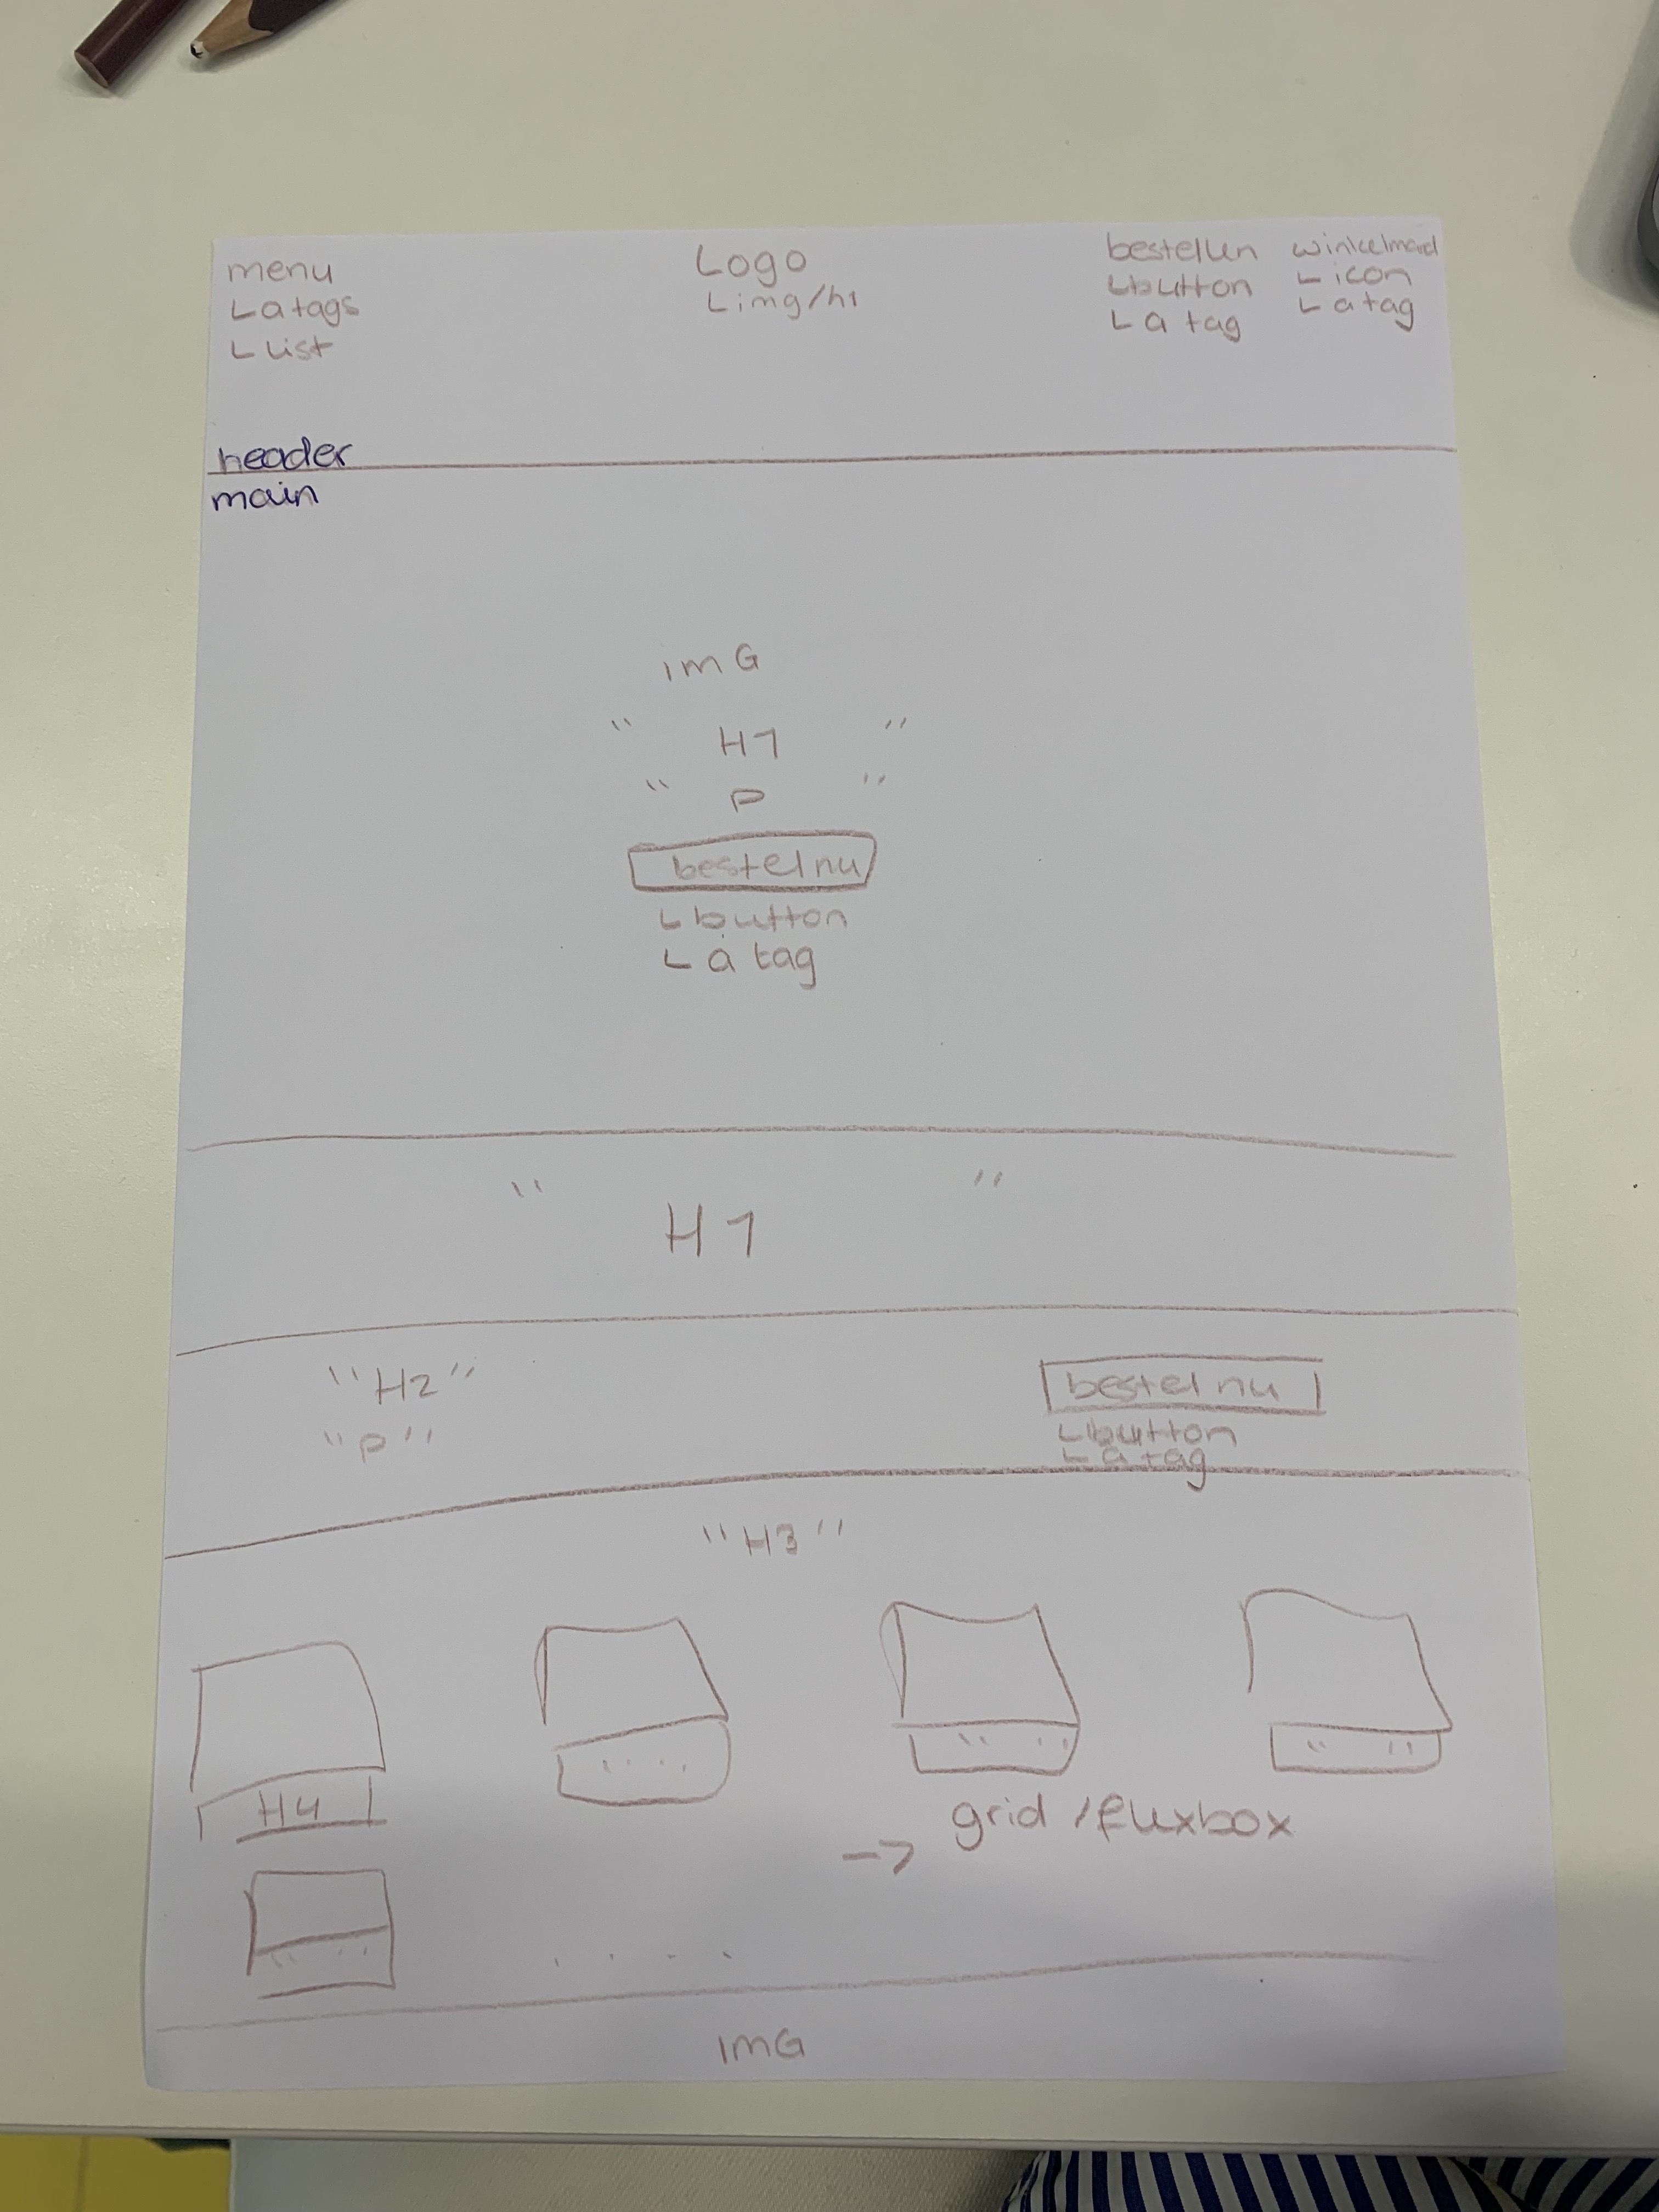 menu
L a tags
L list
Logo
L img/h1
bestellen
L button
L a tag
winkelmand
L icon
L a tag
header
main
imG
" H1 "
" P "
bestel nu
L button
L a tag
" H1 "
"H2"
"P"
bestel nu
L button
L a tag
"H3"
H4
-> grid /flexbox
imG